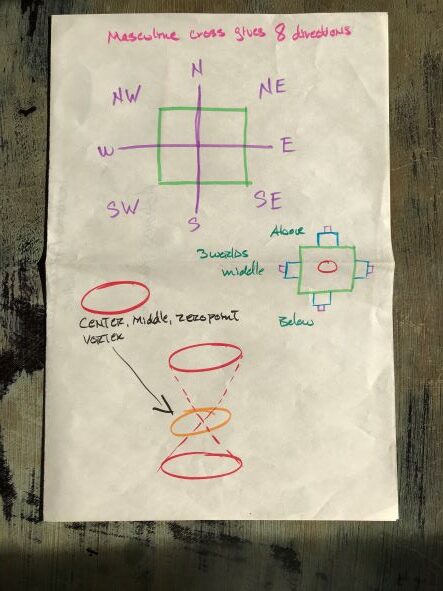 Masculine cross gives 8 directions
N
NW
NE
W
E
SW
SE
S
Above
3 worlds
middle
Below
CENTER, Middle, ZERO POINT
VORTEX